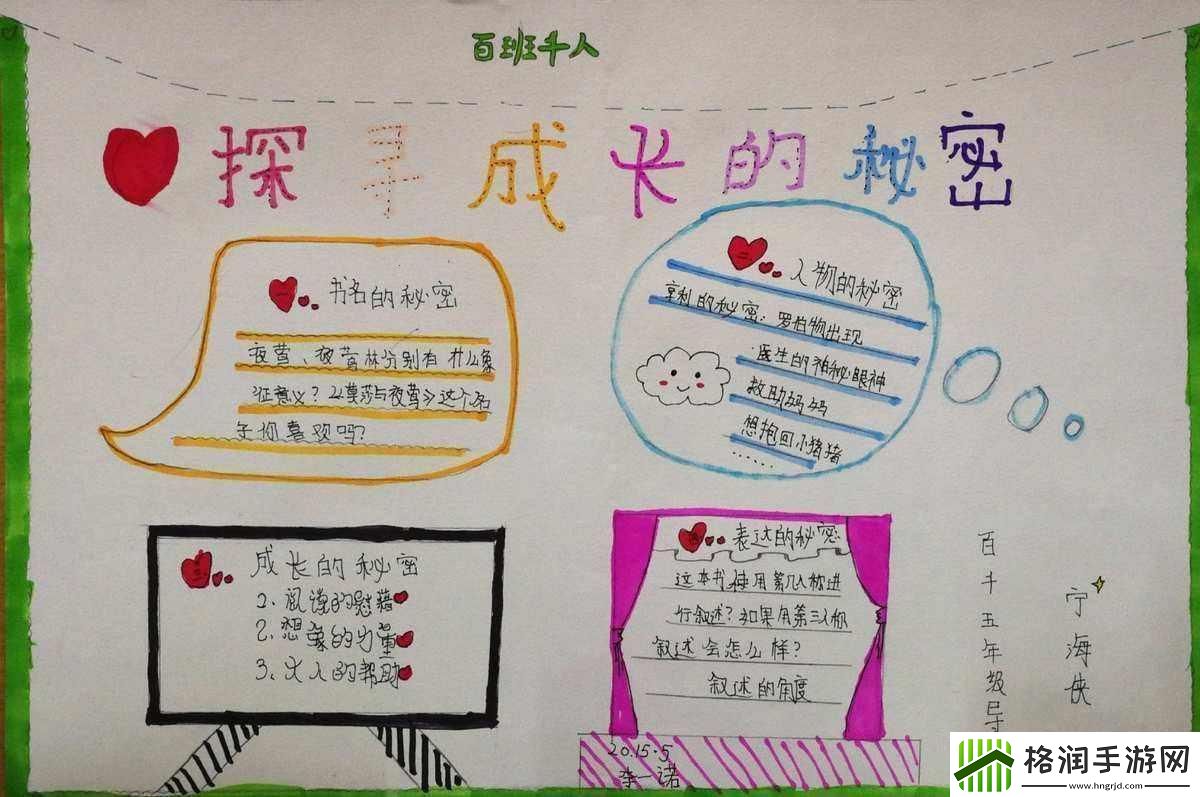 百班千人
探寻成长的秘密
一
书名的秘密
夜莺、夜莺林分别有什么象
征意义？《莫莎与夜莺》这个名
字你喜欢吗？
二
人物的秘密
亨利的秘密：罗伯物出现
医生的神秘眼神
救助妈妈
想抱回小猪猪
……
三
成长的秘密
2、阅读的慰藉
2、想象的力量
3、大人的帮助
四
表达的秘密
这本书使用第几人称进
行叙述？如果用第三人称
叙述会怎么样？
叙述的角度
2015.5
李一诺
百千五年级导
宁海侠
格润手游网
www.hngrjd.com